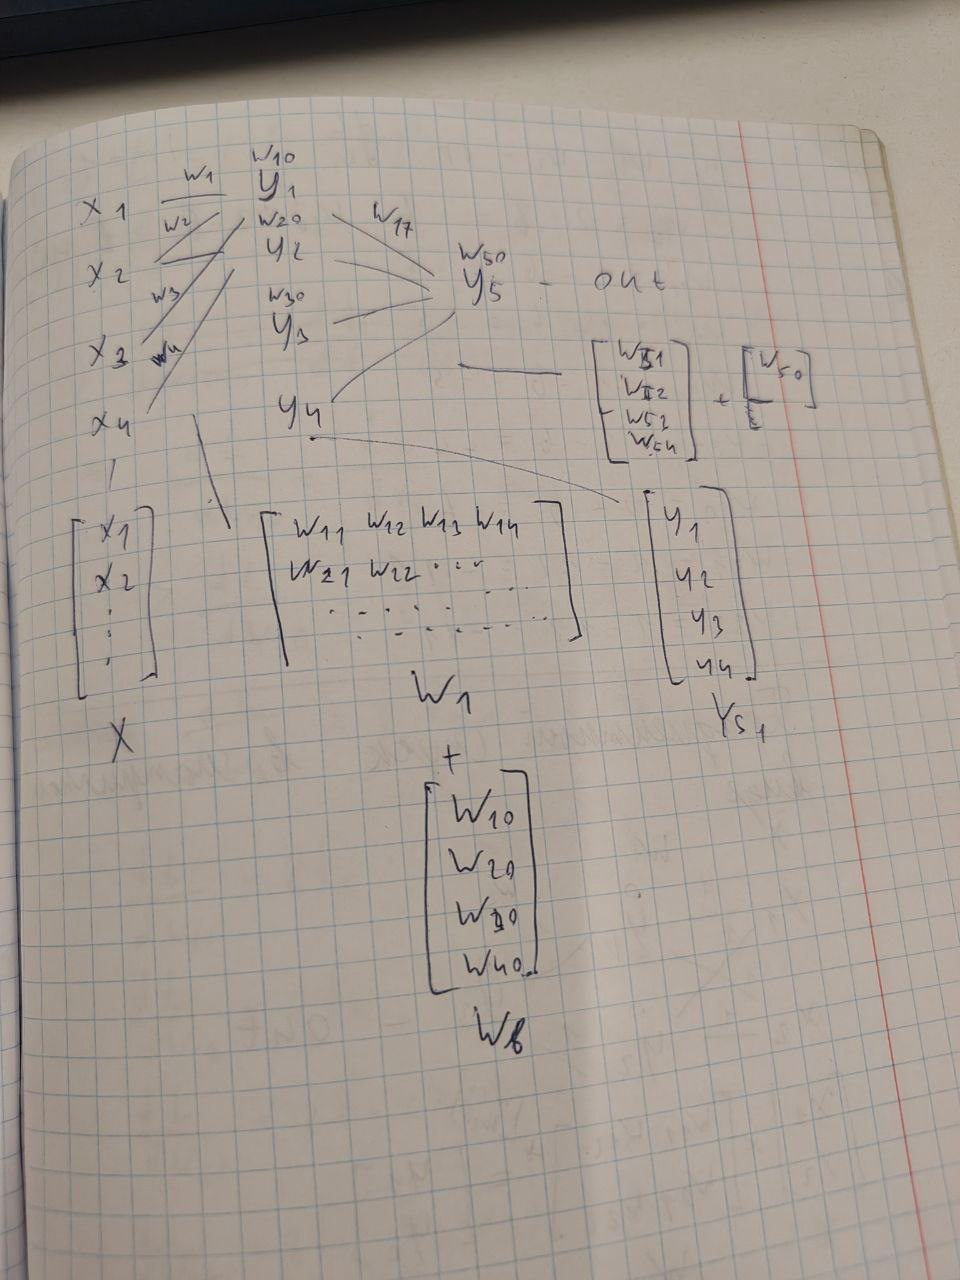 w10
w1
x1 y1
w2 w20 w17
x2 y2 w50
w3 w30 y5 - out
x3 w4 y3
x4 y4
w51
w52
w52
w54
+ w50
x1
x2
⋮
X
w11 w12 w13 w14
w21 w22 ...
W1
y1
y2
y3
y4
Ys1
+
w10
w20
w30
w40
Wb